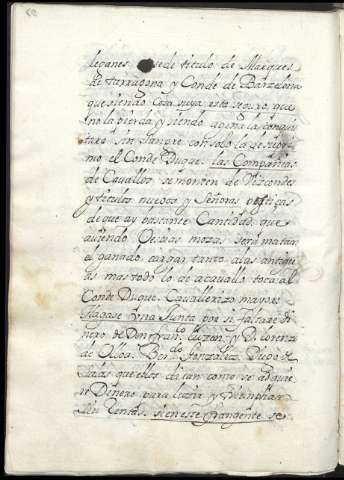 leganes. quede titulo de Marques
de tarragona y Conde de Barzelona
que siendo Cosa suya esta seguro, que
no la pierda y siendo agena la conqui
tara sin sangre con solo
mo el Conde Duque. las Compañias
de Cavallos se monten de Vizcondes
y titulos nuebos y Señoras
de que ay bastante Cantidad, que
aviendo mozas sera matar
el ganado cargar tanto a las antigu
as mas todo lo de acavallo toca al
Conde Duque Cavallerizo mayor
Hagase Una Junta por si faltare di
nero de Don fran.co y D. lorenzo
de Olloa. Ger.do Gonzalez Diego de
que ellos dican como se adquie
re Dinero para luzir y
sus Rentas. si en este frangente se